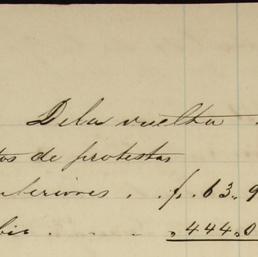 De la vuelta
tos de protestas
nteriores . . f. 63.9
bio . . . . . . 444.0